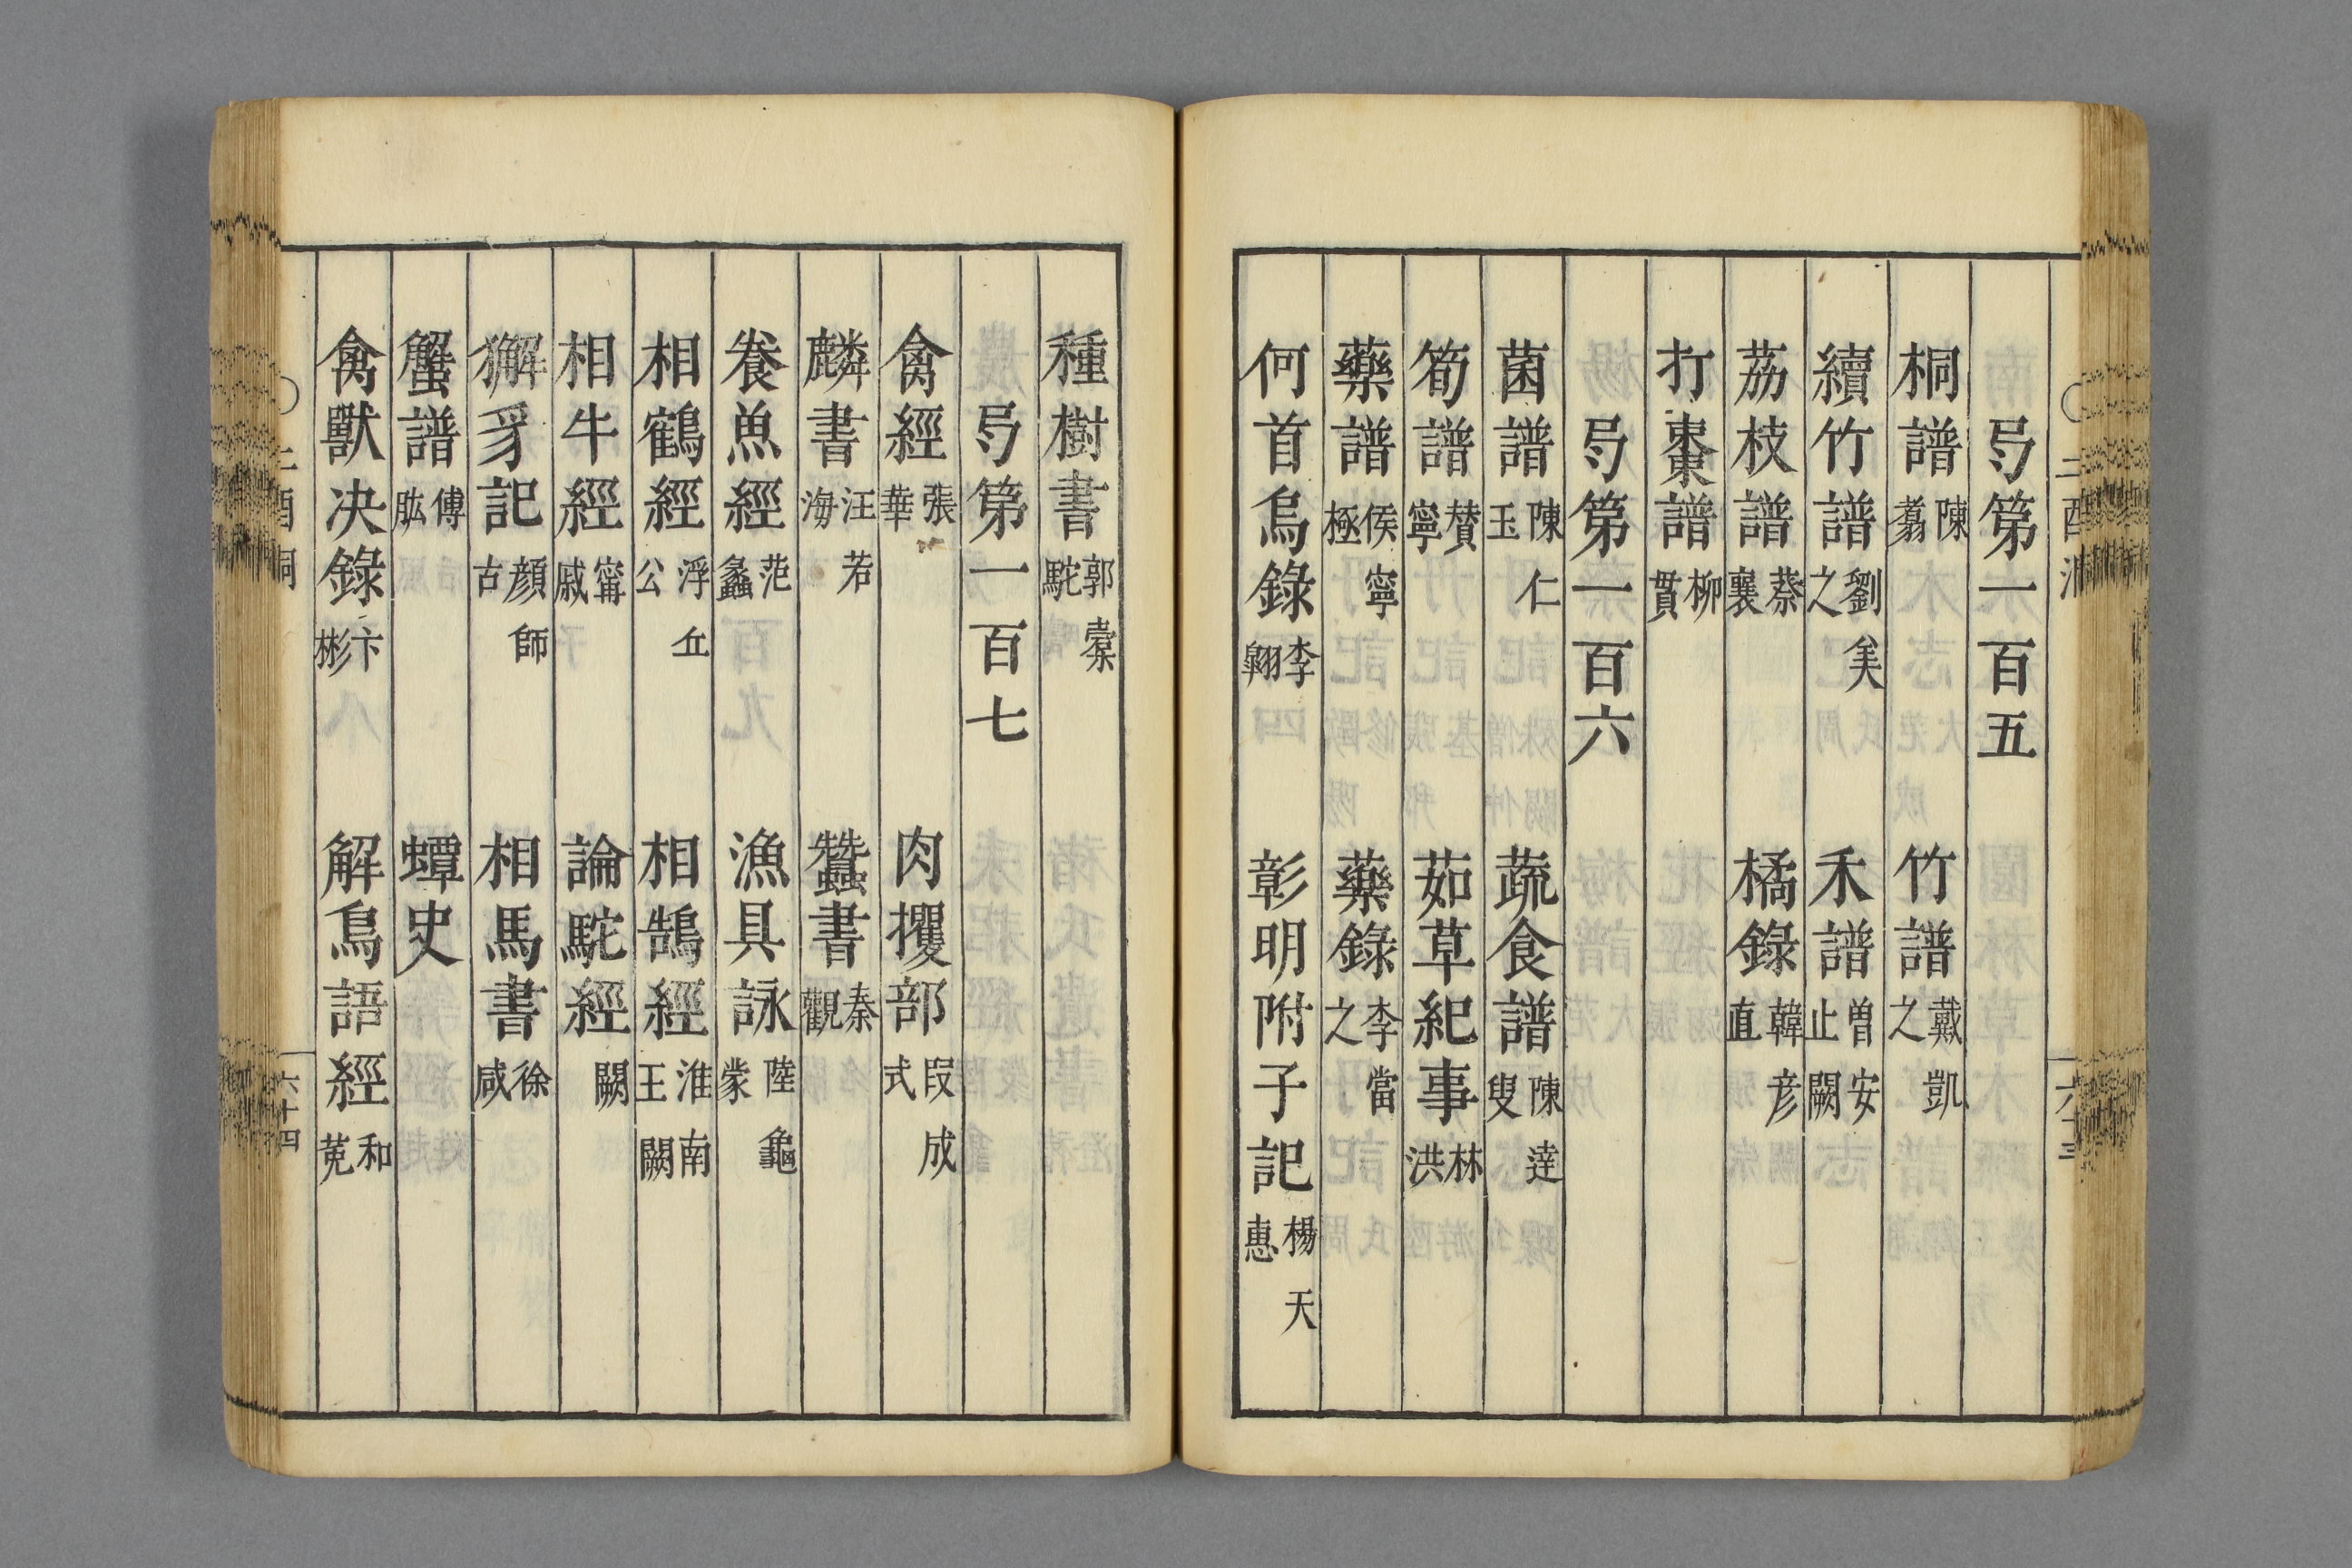 弓第一百五
桐譜 陳翥 竹譜 戴凱之
續竹譜 劉美之 禾譜 曾安止闕
荔枝譜 蔡襄 橘錄 韓彥直
打棗譜 柳貫
弓第一百六
菌譜 陳仁玉 蔬食譜 陳達叟
筍譜 贊寧 茹草紀事 林洪
藥譜 侯寧極 藥錄 李當之
何首烏錄 李翱 彰明附子記 楊天惠
種樹書 郭橐駝
弓第一百七
禽經 張華 肉攫部 段成式
麟書 汪若海 蠶書 秦觀
養魚經 范蠡 漁具詠 陸龜蒙
相鶴經 浮丘公 相鵠經 淮南王闕
相牛經 甯戚 論駝經 闕
獬豸記 顏師古 相馬書 徐咸
蟹譜 傅肱 蟫史
禽獸决錄 卞彬 解鳥語經 和菟
六十四